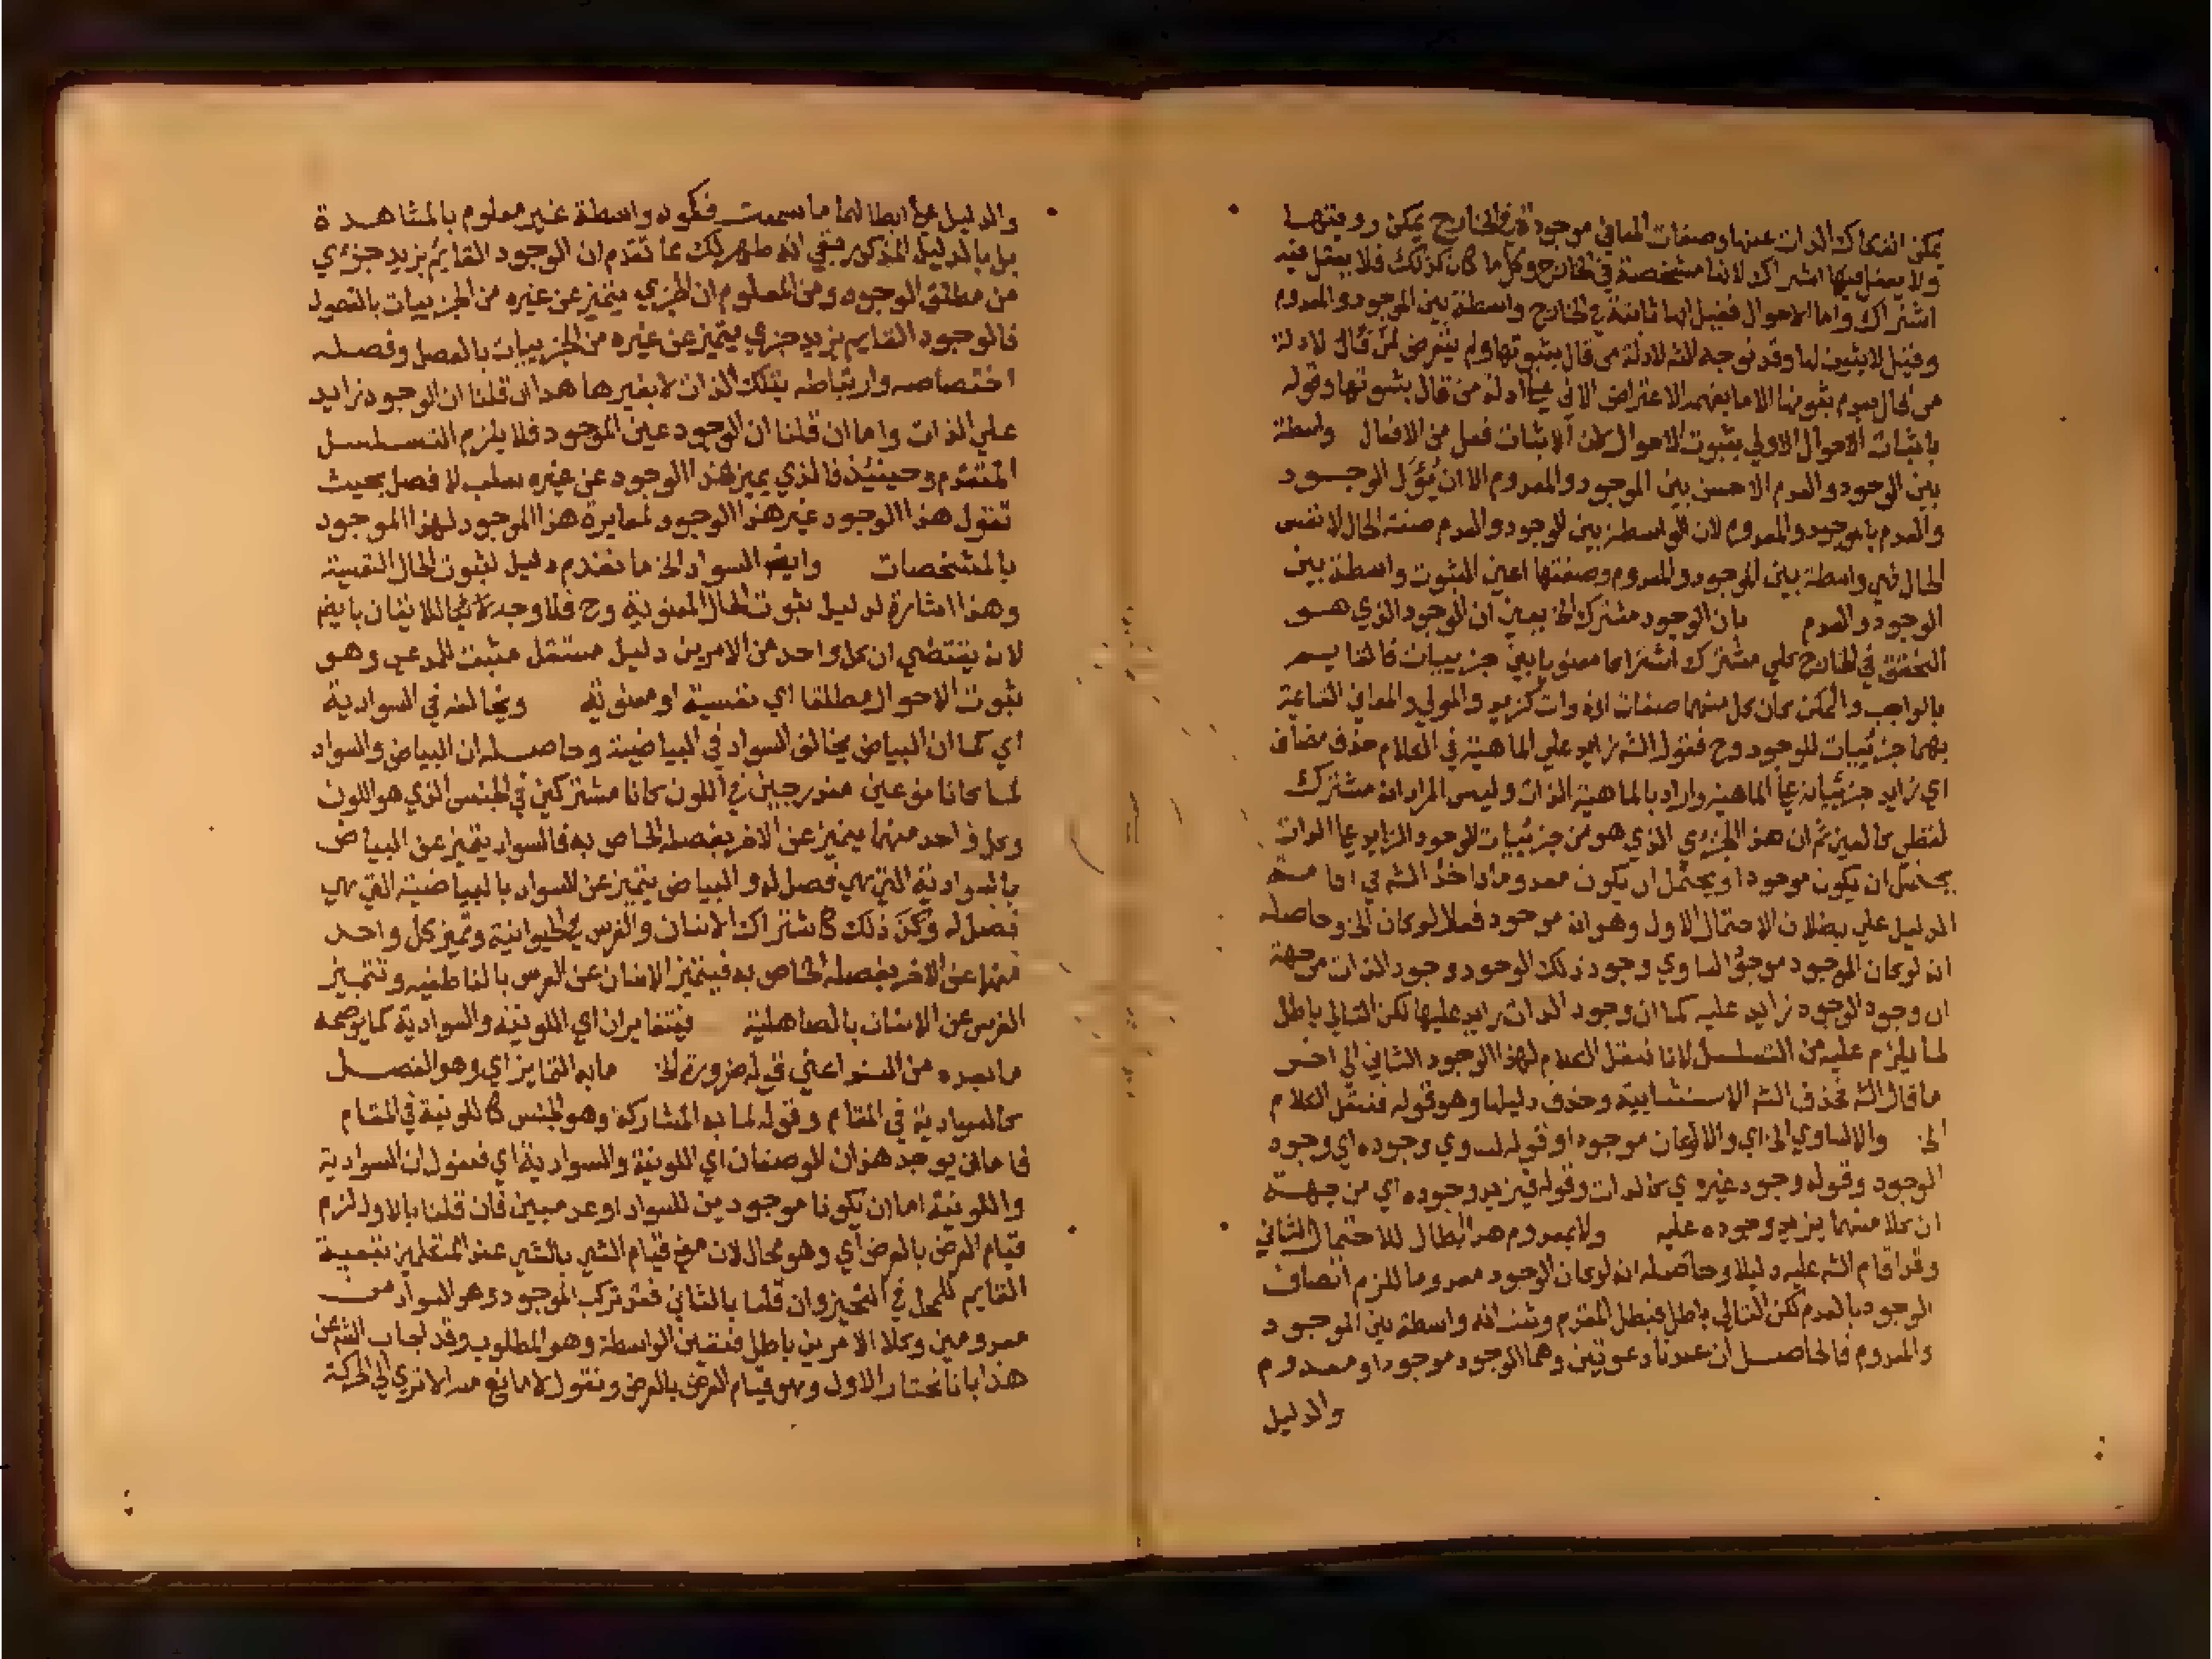 يمكن انفكاك الذات عنها وصفات المعاني موجودة في الخارج يمكن رويتها
ولا يعقل فيها اشتراك لانها مشخصة في الخارج وكل ما كان كذلك فلا يعقل فيه
اشتراك واما الاحوال فقيل انها ثابتة في الخارج واسطة بين الموجود والمعدوم
وقيل لا ثبوت لها وقد توجه الش لادلة من قال بثبوتها ولم يتعرض لمن قال لادلة
من قال بعدم ثبوتها الا ما يفهم الاعتراض الاتي علي ادلة من قال بثبوتها وقوله
باثبات الاحوال الاولي بثبوت الاحوال لان الاثبات فعل من الافعال واسطة
بين الوجود والعدم الاحسن بين الموجود والمعدوم الا ان يؤول الوجود
والعدم بالموجود والمعدوم لان الواسطة بين الوجود والعدم صفة الحال لا نفس
الحال فهي واسطة بين الموجود والمعدوم وصفتها اعني الثبوت واسطة بين
الوجود والعدم بان الوجود مشترك الخ يعني ان الوجود الذي هو
التحقق في الخارج كلي مشترك اشتراكا معنويا بين جزييات كالقايم
بالواجب والممكن كان كل منهما صفات او ذوات كزيد والمولي والمعاني القايمة
بهما جزييات للوجود وح فقول الش زايد علي الماهية في الكلام حذف مضاف
اي زايد جزئياته علي الماهية واراد بالماهية الذات وليس المراد انه مشترك
لفظي كالعين ثم ان هذا الجزءي الذي هو من جزئيات الوجود الزايد علي الذات
يحتمل ان يكون موجودا ويحتمل ان يكون معدوما اذا اخذ الش في اقامة
الدليل علي بطلان الاحتمال الاول وهو انه موجود فعلا لو كان الخ وحاصله
ان لو كان الوجود موجود الساوي وجود ذلك الوجود وجود الذات من جهة
ان وجود الوجود زايد عليه كما ان وجود الذات زايد عليها لكن التالي باطل
لما يلزم عليه من التسلسل لانا ننقل الكلام لهذا الوجود الثاني الي اخر
ما قال الش فحذف الش الاستثنائية وحذف دليلها وهو قوله فننقل الكلام
الخ والا لساوي الخ اي والا لو كان موجودا وقوله لسوي وجوده اي وجود
الوجود وقوله وجود غيره اي كالذات وقوله فيزيد وجوده اي من جهة
ان كلا منهما يزيد وجوده عليه ولا بمعدوم هذا ابطال للاحتمال الثاني
وقد اقام الش عليه دليلا وحاصله انه لو كان الوجود معدوما للزم اتصاف
الوجود بالعدم لكن التالي باطل فبطل المقدم وثبت انه واسطة بين الموجود
والمعدوم فالحاصل ان عندنا دعوتين وهما الوجود موجود او معدوم
والدليل
والدليل علي ابطالهما ما سمعت فكونه واسطة غير معلوم بالمشاهدة
بل بالدليل المذكور بقي انه ظهر لك مما تقدم ان الوجود القايم بزيد جزءي
من مطلق الوجود ومن المعلوم ان الجزي يتميز عن غيره من الجزييات بالفصول
فالوجود القايم بزيد جزءي يتميز عن غيره من الجزييات بالفصل وفصله
اختصاصه وارتباطه بتلك الذات لا بغيرها هذا ان قلنا ان الوجود زايد
علي الذات واما ان قلنا ان الوجود عين الموجود فلا يلزم التسلسل
المتقدم وحينئذ فالذي يميز هذا الوجود عن غيره سلب لا فصل بحيث
تقول هذا الوجود غير هذا الوجود لمغايرة هذا الموجود لهذا الموجود
بالمشخصات وايضا السواد الخ ما تقدم دليل لثبوت الحال النفسية
وهذا اشارة لدليل ثبوت الحال المعنوية وح فلا وجه للاتيان بايضا
لانه يقتضي ان كل واحد من الامرين دليل مستقل مثبت للمدعي وهو
ثبوت الاحوال مطلقا اي نفسية او معنوية ويخالفه في السوادية
اي كما ان البياض يخالف السواد في البياضية وحاصله ان البياض والسواد
لما كانا نوعين مندرجين في اللون كانا مشتركين في الجنس الذي هو اللون
وكل واحد منهما يتميز عن الاخر بفصله الخاص به فالسواد يتميز عن البياض
بالسوادية التي هي فصل له والبياض يتميز عن السواد بالبياضية التي هي
فصل له وكذلك كاشتراك الانسان والفرس في الحيوانية وتميز كل واحد
منهما عن الاخر بفصله الخاص به فيتميز الانسان عن الفرس بالناطقية وتتميز
الفرس عن الانسان بالصاهلية فيتغايران اي اللونية والسوادية كما يوضحه
ما بعده من السند اعني قوله ضرورة الخ ما به التمايز اي وهو الفصل
كالسوادية في المقام وقوله لما به المشاركة وهو الجنس كاللونية في المقام
فاما ان يوجد هذان الوصفان اي اللونية والسوادية اي فنقول ان السوادية
واللونية اما ان يكونا موجودين للسواد او عدميين فان قلنا بالاول لزم
قيام العرض بالعرض اي وهو محال لان معني قيام الشي بالشي عند المتكلمين تبعية
القايم للمحل في التحيز وان قلنا بالثاني فقد تركب الموجود وهو السواد من
معدومين وكلا الامرين باطل فتعين الواسطة وهو المطلوب وقد اجاب الش عن
هذا بانا نختار الاول وهو قيام العرض بالعرض ونقول لا مانع منه الا تري الي الحركة